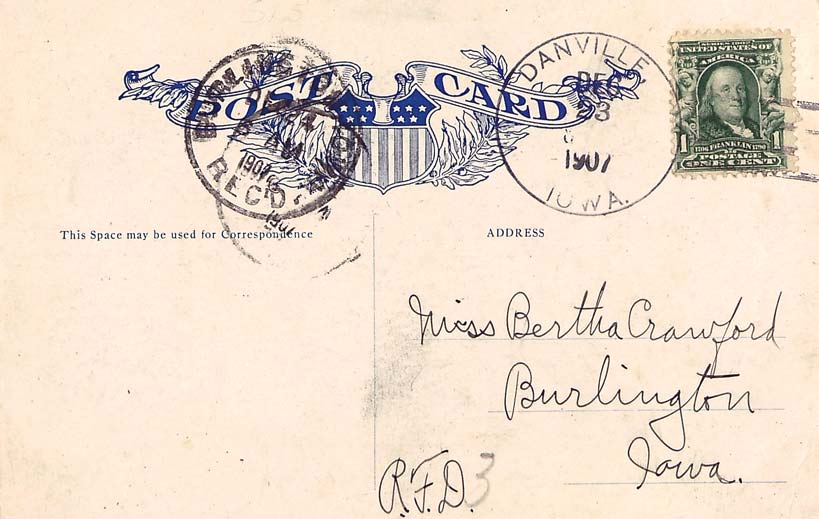 POST CARD
BURLINGTON
6 AM
1907
REC'D.
1907
DANVILLE
DEC
23
1907
IOWA.
SERIES 1902
UNITED STATES OF
AMERICA
1706 FRANKLIN 1790
1 POSTAGE
ONE CENT
This Space may be used for Correspondence
ADDRESS
Miss Bertha Crawford
Burlington
Iowa.
R.F.D. 3